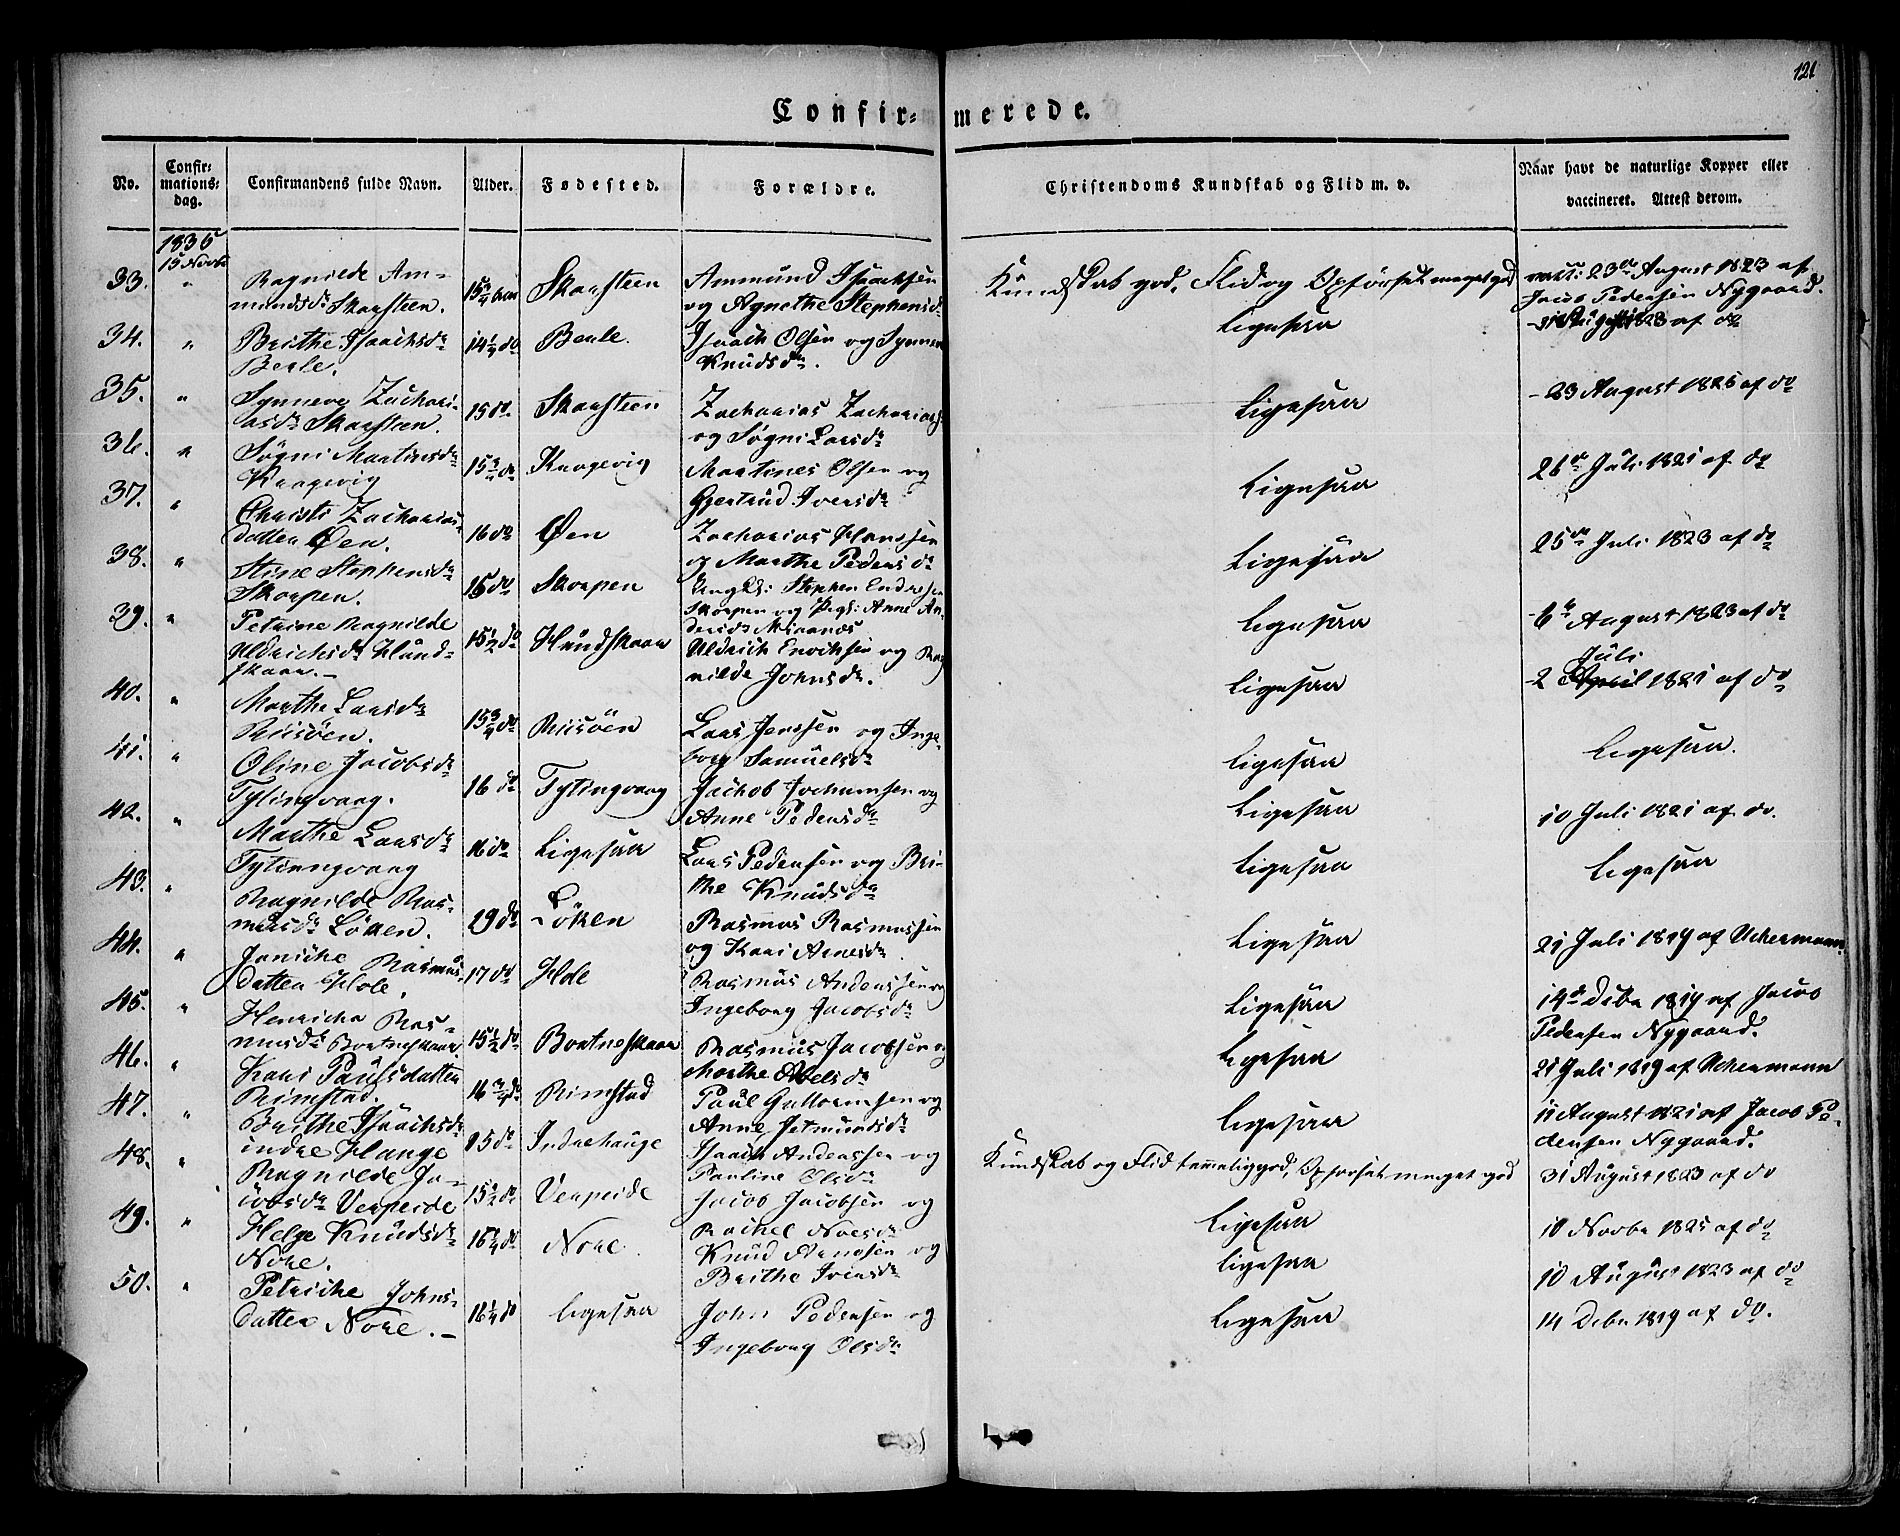 121
Confir=merede.
No.
Confir=
mations=
dag.
Confirmandens fulde Navn.
Alder.
Fødested.
Forældre.
Christendoms Kundskab og Flid m. v.
Naar havt de naturlige Kopper eller
vaccineret. Attest derom.
1836
15 Novbr
33. " Ragnilde Am=
mundsdr Skarsteen.
Skarsteen
Ammund Isaachsen
og Agnethe Stephensdr
Kundskab god, Flid og Opførsel meget god
vacc: 23de August 1823 af
Jacob Pedersen Nygaard.
34. " Brithe Isaachsdr
Berle.
14½ do
Berle.
Isaach Olsen og Synneve
Knudsdr.
Ligesaa
1823 af do
35. " Synneve Zachari=
asdr Skarsteen.
15 do
Skarsteen
Zacharias Zacharias
og Søgni Larsdr
Ligesaa
- 23 August 1825 af do
36. " Søgni Martinsdr
Kragevig
15¾ do
Kragevig
Martines Olsen og
Gjertrud Iversdr
Ligesaa
26de Juli 1821 af do
37. " Christi Zacharias
datter Øen.
16 do
Øen
Zacharias Hanssen
og Marthe Pedersdr
Ligesaa
25de Juli 1823 af do
38. " Stine Stephensdr
Skorpen.
15 do
Skorpen
Ungk: Stephen Endresen
Skorpen og Pige: Anne An
dersdr
Ligesaa
- 6te August 1823 af do
39. " Petrine Ragnilde
Uldrichsdr Hund=
skaar.-
15½ do
Hundskaar
Uldrich Enochsen og Rag
nilde Johnsdr.
Ligesaa
Juli
- 2 April 1821 af do
40. " Marthe Larsdr
Riisöen.
15¾ do
Riisöen
Lars Jenssen og Inge=
borg Samuelsdr
Ligesaa
Ligesaa.
41. " Oline Jacobsdr
Tytingvaag.
16 do
Tytingvaag
Jachob Jochumsen og
Anne Pedersdr
Ligesaa
10 Juli 1821 af do.
42. " Marthe Larsdr
Tytingvaag
16 do
Ligesaa
Lars Pedersen og Bri=
the Knudsdr
Ligesaa
Ligesaa
43. " Ragnilde Ras=
musdr Löken.
19 do
Löken
Rasmus Rasmussen
og Kari Arnesdr
Ligesaa
21 Juli 1819 af Uchermann
44. " Janiche Rasmus
datter Hole.
17 do
Hole
Rasmus Anderssen og
Ingeborg Jacobsdr
Ligesaa
14de Debr 1819 af Jacob
Pedersen Nygaard.
45. " Henriche Ras=
musdr Bortneskaar.
15½ do
Bortneskaar
Rasmus Jacobsen og
Marthe Abelsdr
Ligesaa
21 Juli 1819 af Uchermann
46. " Kari Paulsdatter
Rimstad.
16¾ do
Rimstad
Paul Guttormsen og
Anne Jetmundsdr
Ligesaa
11 August 1821 af Jacob Pe=
dersen Nygaard.
47. " Brithe Isaachsdr
indre Hauge
15 do
Indrehauge
Isaach Anderssen og
Pauline Olsdr
Kundskab og Flid temmelig god, Opførsel meget god
31 August 1823 af do
48. " Ragnilde Ja=
cobsdr Verpeide
15½ do
Verpeide
Jacob Jacobsen og
Rachel
Ligesaa
10 Novbr 1825 af do
49. " Helge Knudsdr
Nore.
Nore
Knud Arnesen og
Brithe Iversdr
Ligesaa
10 August 1823 af do
50. " Petriche Johns=
datter Nore.-
16¼ do
Ligesaa
John Pedersen og
Ingeborg Olsdr
Ligesaa
14 Debr 1819 af do.